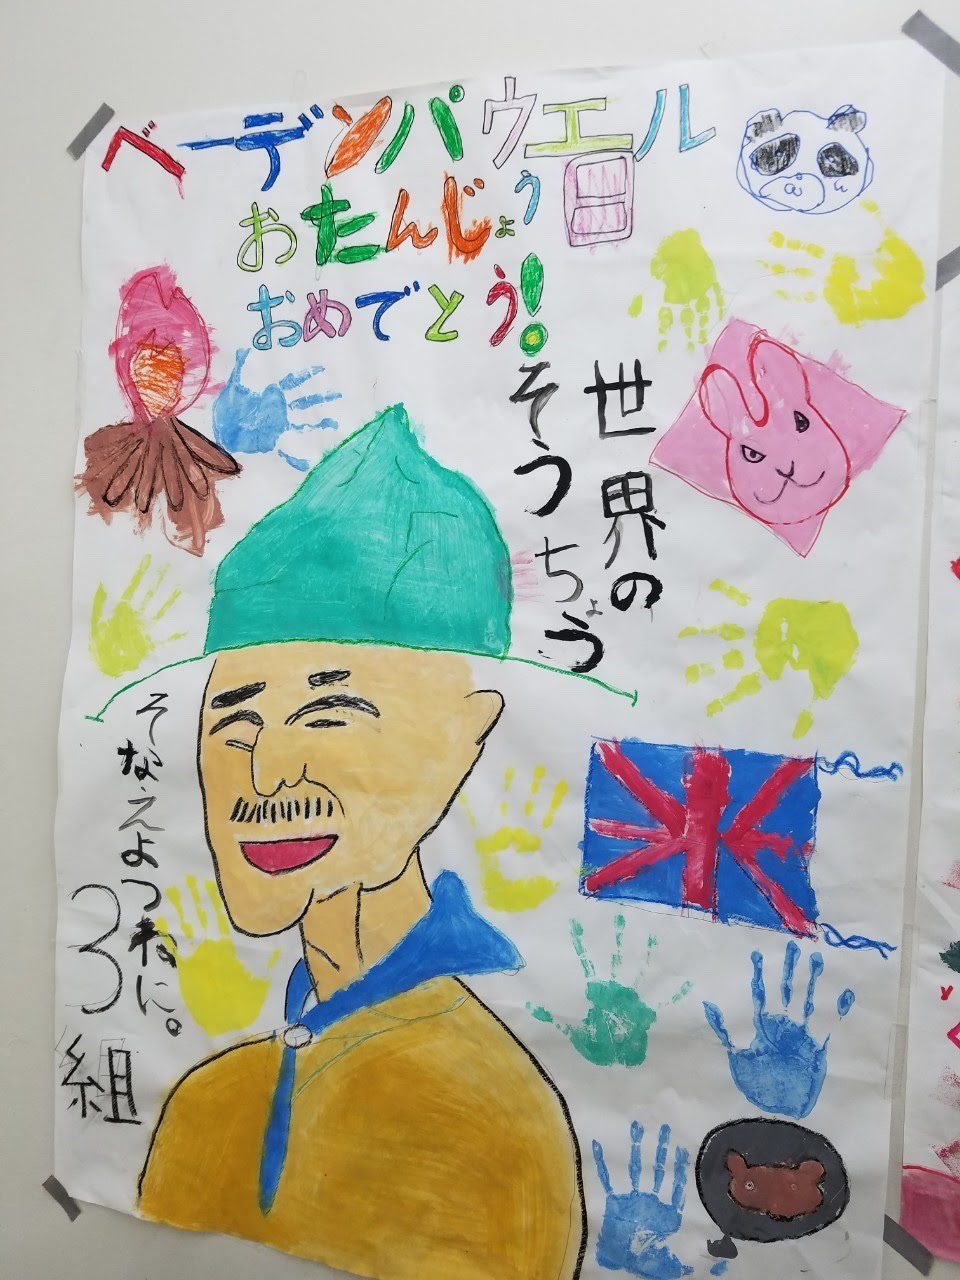 ベーデンパウエル
おたんじょう日
おめでとう!
世界の
そうちょう
そなえよつねに。
3組